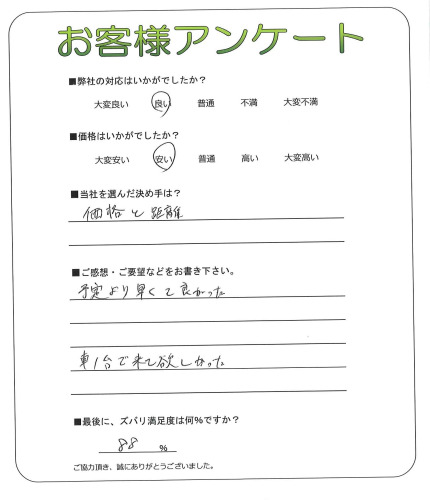 お客様アンケート
■弊社の対応はいかがでしたか？
大変良い 良い 普通 不満 大変不満
■価格はいかがでしたか？
大変安い 安い 普通 高い 大変高い
■当社を選んだ決め手は？
価格と距離
■ご感想・ご要望などをお書き下さい。
予定より早くて良かった
車1台で来て欲しかった
■最後に、ズバリ満足度は何％ですか？
88 ％
ご協力頂き、誠にありがとうございました。